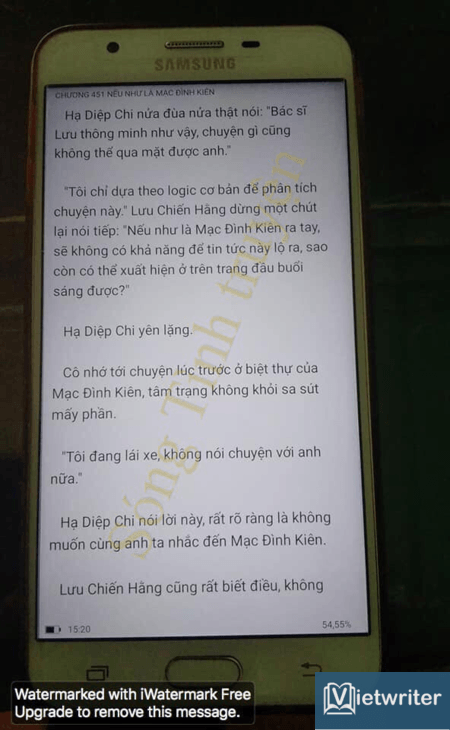 SAMSUNG
CHƯƠNG 451 NẾU NHƯ LÀ MẠC ĐÌNH KIÊN
Hạ Diệp Chi nửa đùa nửa thật nói: "Bác sĩ
Lưu thông minh như vậy, chuyện gì cũng
không thể qua mặt được anh."
"Tôi chỉ dựa theo logic cơ bản để phân tích
chuyện này." Lưu Chiến Hằng dừng một chút
lại nói tiếp: "Nếu như là Mạc Đình Kiên ra tay,
sẽ không có khả năng để tin tức này lộ ra, sao
còn có thể xuất hiện ở trên trang đầu buổi
sáng được?"
Hạ Diệp Chi yên lặng.
Cô nhớ tới chuyện lúc trước ở biệt thự của
Mạc Đình Kiên, tâm trạng không khỏi sa sút
mấy phần.
"Tôi đang lái xe, không nói chuyện với anh
nữa."
Hạ Diệp Chi nói lời này, rất rõ ràng là không
muốn cùng anh ta nhắc đến Mạc Đình Kiên.
Lưu Chiến Hằng cũng rất biết điều, không
Sóng Tình truyện
15:20
54,55%
Watermarked with iWatermark Free
Upgrade to remove this message.
Vietwriter